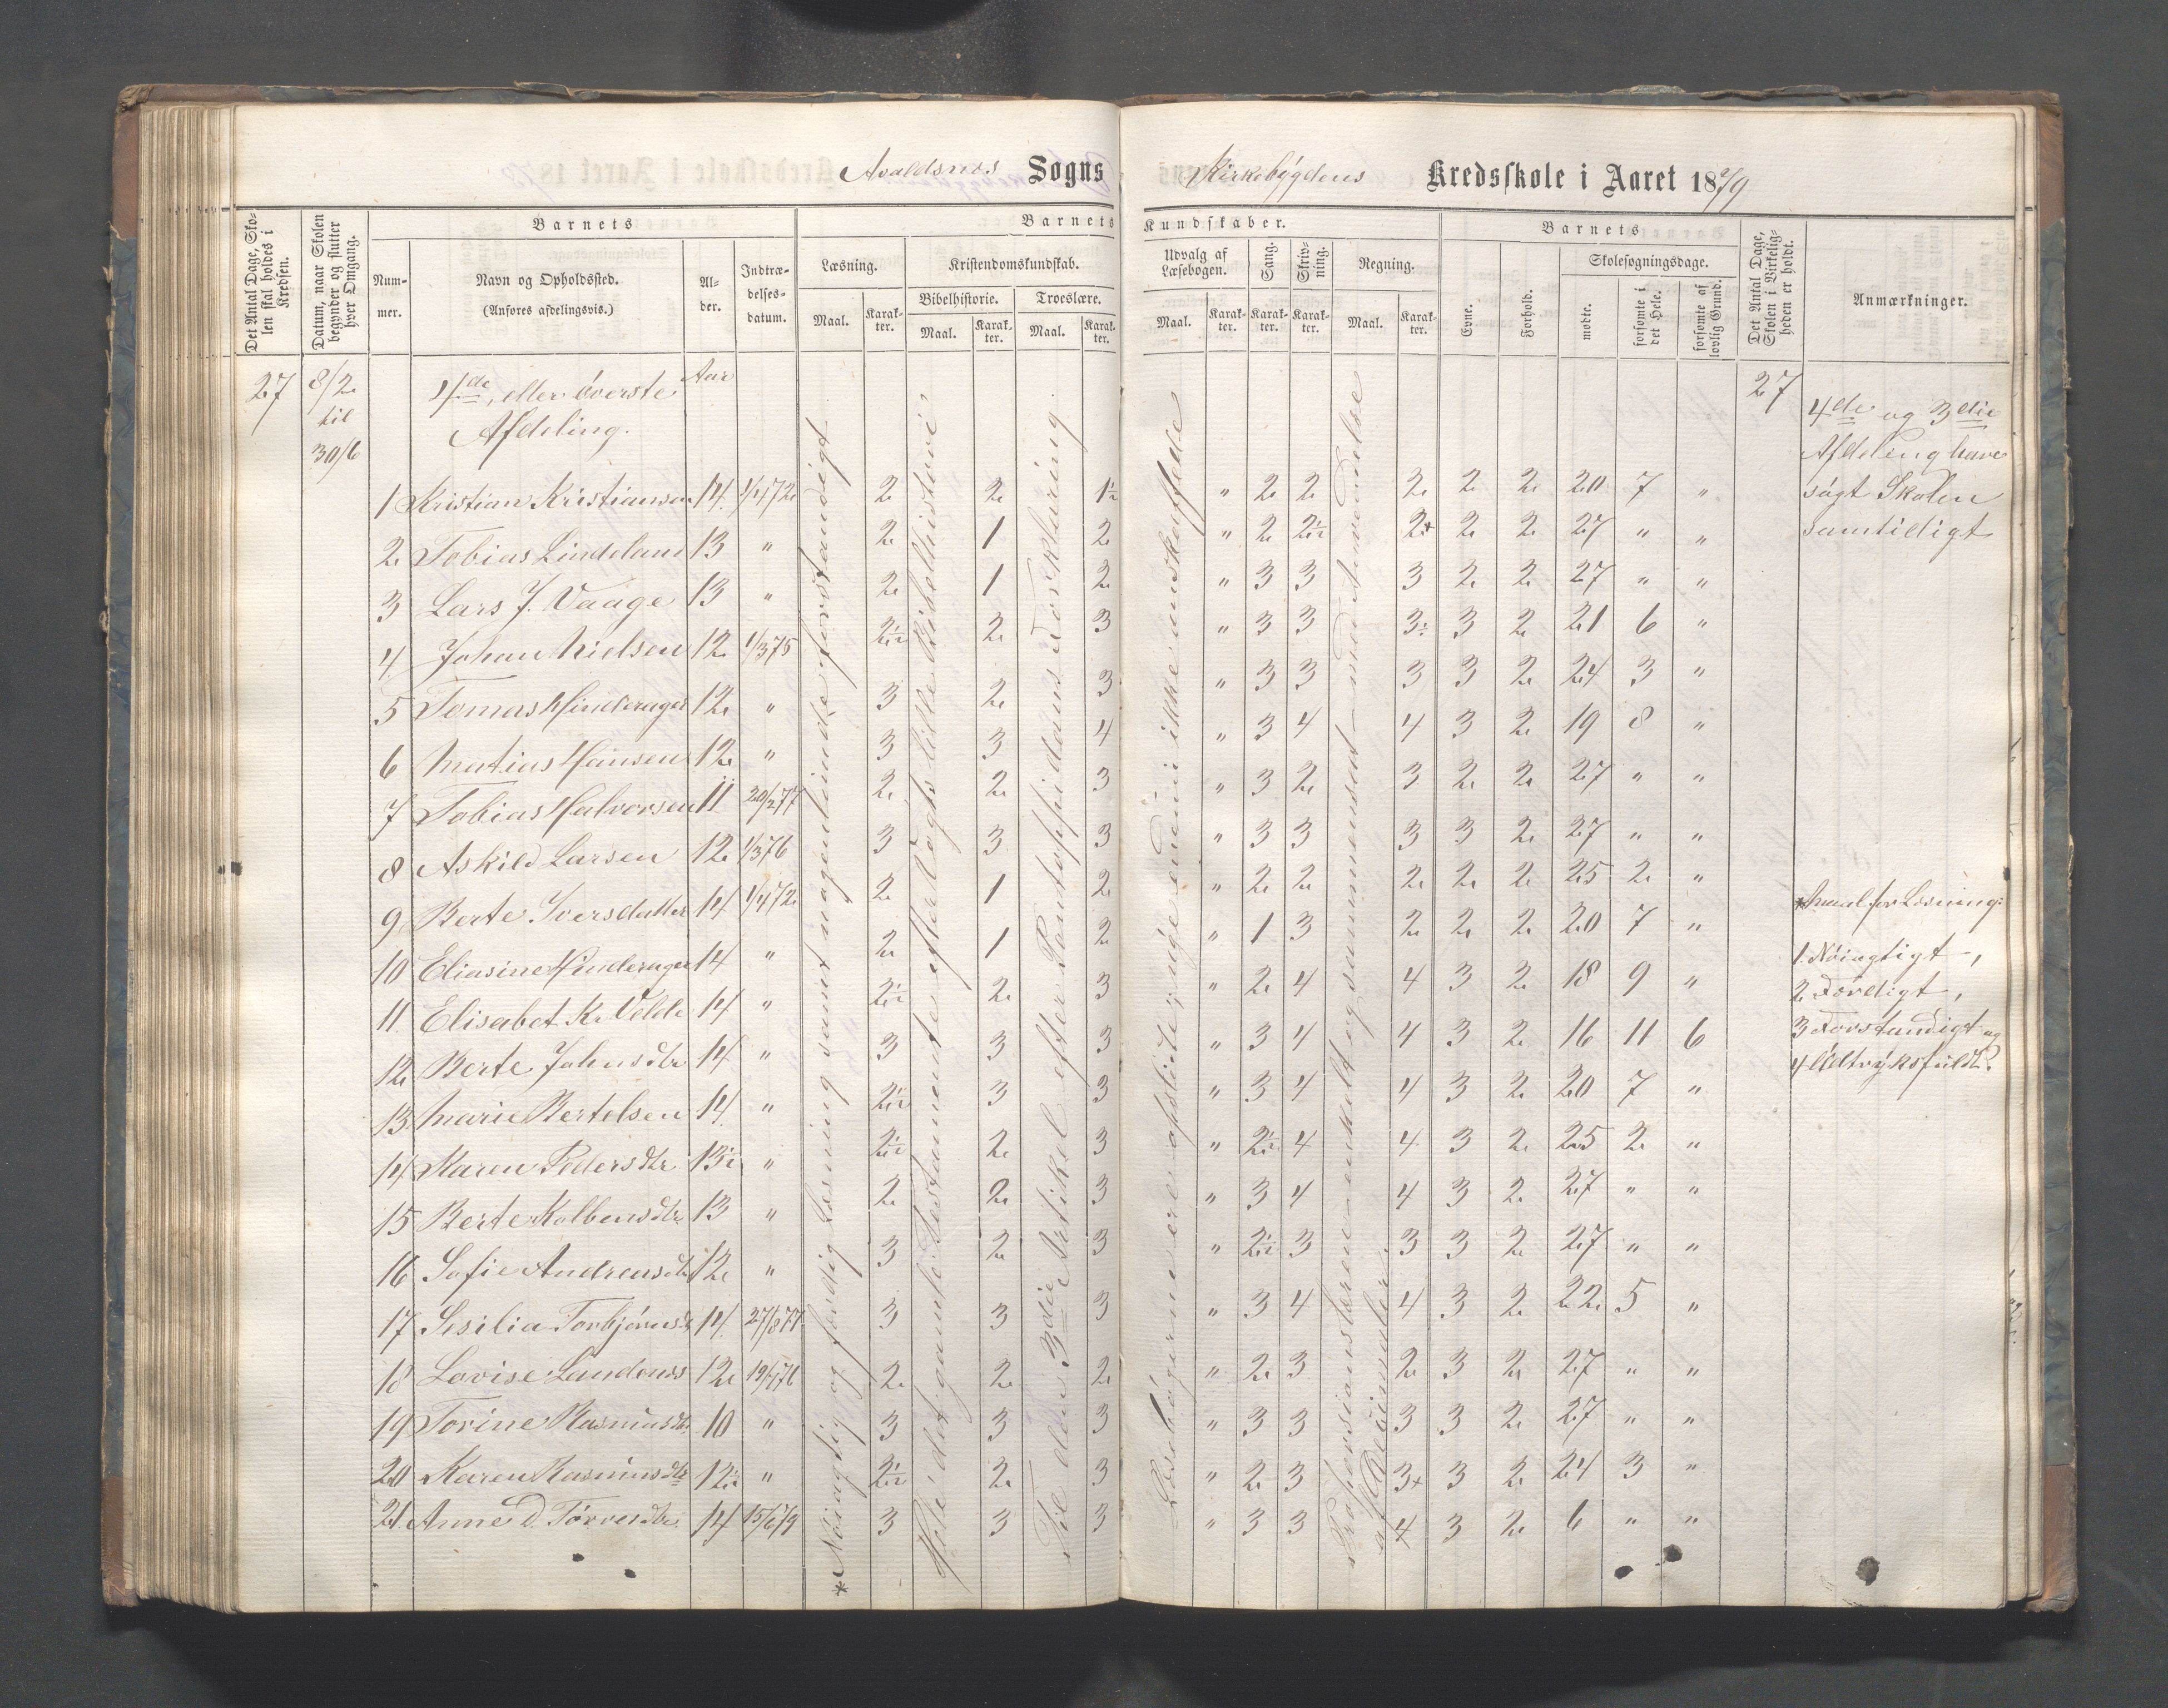 Avaldsnes Sogns Kirkebygdens Kredsskole i Aaret 1879
Det Antal Dage, Skolen skal holdes i Kredsen.
Datum, naar Skolen begynder og slutter hver Omgang.
Barnets
Nummer.
Navn og Opholdssted.
(Anføres afdelingsvis.)
Alder.
Indtrædelsesdatum.
Barnets Kundskaber.
Læsning.
Maal. Karakter.
Kristendomskundskab.
Bibelhistorie. Troeslære.
Maal. Karakter. Maal. Karakter.
Udvalg af Læsebogen.
Maal. Karakter.
Sang. Karakter.
Skrivning. Karakter.
Regning.
Maal. Karakter.
Barnets
Evne. Forhold.
Skolesøgningsdage.
mødte. forsømte i det Hele. forsømte af lovlig Grund.
Det Antal Dage, Skolen i Virkeligheden er holdt.
Anmærkninger.
27 8/2 til 30/6
4de, eller øverste Aar
Afdeling.
27
4de og 3die
Afdeling have
søgt Skolen
samtidigt
1 Kristian Kristiansen 14 1/4 72 2 2 1½ " 2 2 2 2 2 20 7 "
2 Tobias Lindeland 13 " 2 1 2 " 2 2½ 2+ 2 2 27 " "
3 Lars J. Vaage 13 " 2 1 2 " 3 3 3 2 2 27 " "
4 Johan Nielsen 12 1/3 75 2½ 2 3 " 3 3 3÷ 3 2 21 6 "
5 Tomas Hinderager 12 " 3 2 3 " 3 3 3 3 2 24 3 "
6 Matias Hansen 12 " 3 3 4 " 3 4 4 3 2 19 8 "
7 Tobias Halvorsen 11 20/2 77 2 2 3 " 3 2 3 2 2 27 " "
8 Askild Larsen 12 1/3 76 3 3 3 " 3 3 3 3 2 27 " "
9 Berte Iversdatter 14 1/4 72 2 1 2 " 2 2 2 2 2 25 2 "
10 Eliasine Hinderager 14 " 2 1 2 " 1 3 2 2 2 20 7 "
11 Elisabet K. Velde 14 " 2½ 2 3 " 2 4 4 3 2 18 9 "
12 Berte Johnsdtr 14 " 3 3 3 " 3 4 4 3 2 16 11 6
13 Marie Bertelsen 14 " 2½ 3 3 " 3 4 4 3 2 20 7 "
14 Maren Pedersdtr 13½ " 2½ 2 3 " 2½ 4 4 3 2 25 2 "
15 Berte Kolbensdtr 13 " 2 2 3 " 3 4 4 3 2 27 " "
16 Sofie Andreasdtr 12 " 3 2 3 " 2½ 3 3 3 2 27 " "
17 Sesilia Torbjørnsd 14 27/8 77 3 3 3 " 3 4 4 3 2 22 5 "
18 Lovise 12 19/4 76 2 2 2 " 2 3 2 3 2 27 " "
19 Torine Rasmusdtr 10 " 3 3 3 " 3 3 3 3 2 27 " "
20 Karen Rasmusdtr 12½ " 2½ 2 3 " 2 3 3+ 3 2 24 3 "
21 Anne D. 14 15/6 79 3 3 3 " 3 3 4 3 2 6 " "
*Nøiagtig og færdig Læsning samt nogenlunde forstandigt
Hele det gamle Testamente efter Vogts lille Bibelhistorie
Til den 3die Artikel efter Pontoppidans Forklaring
Læsebøgerne ere opslidte; nye endnu ikke anskaffede
af Decimaler
*Maal for Læsning:
1 Nøiagtigt,
2 Færdigt,
3 Forstandigt og
4 Udtryksfuldt.